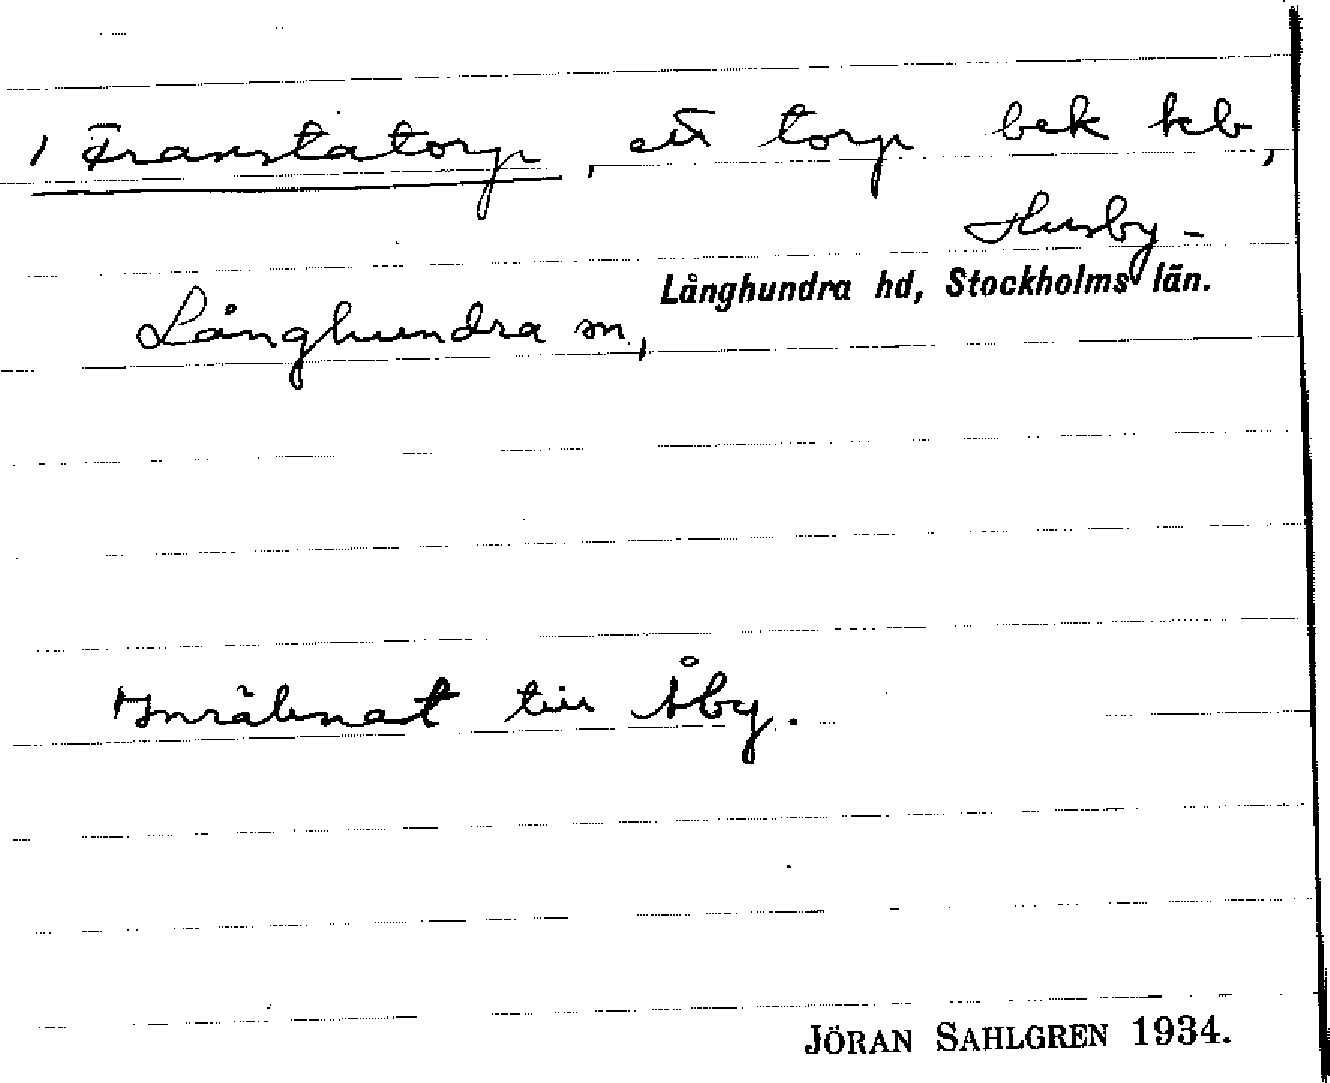 1 Framstatorp, ett torp bek kb,
Husby-
Långhundra hd, Stockholms län.
Långhundra sn,
Inräknat till Åby.
JÖRAN SAHLGREN 1934.